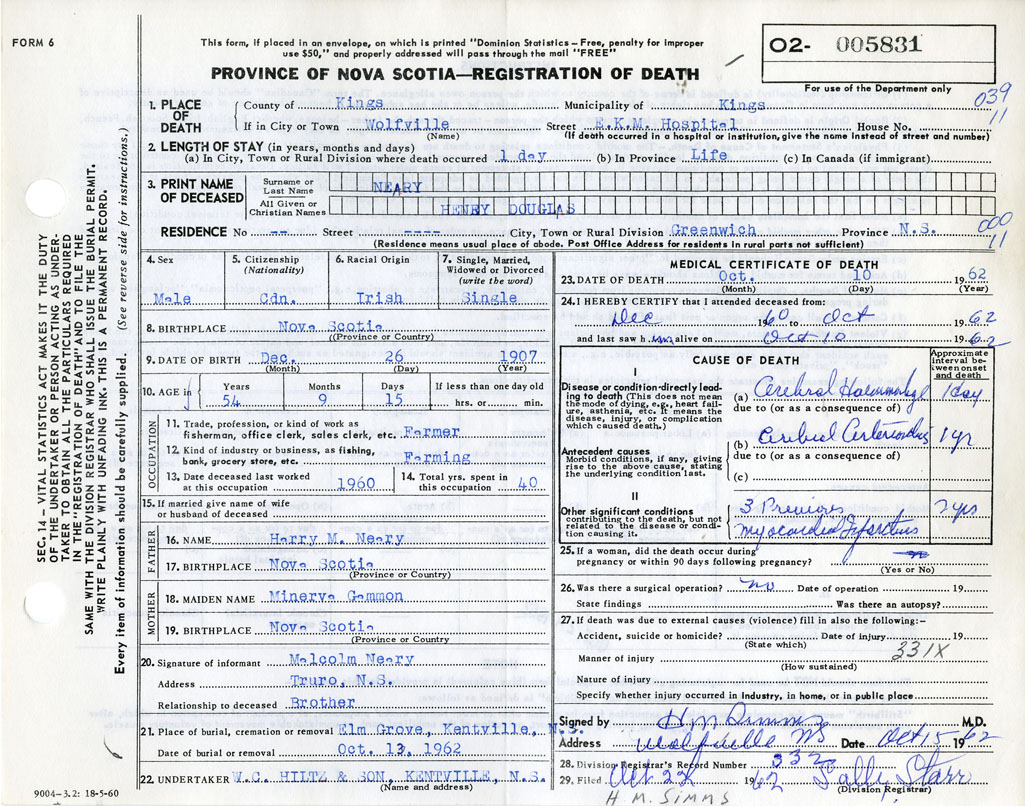 FORM 6
This form, if placed in an envelope, on which is printed "Dominion Statistics – Free, penalty for improper
use $50," and properly addressed will pass through the mail "FREE"
O2- 005831
For use of the Department only
PROVINCE OF NOVA SCOTIA—REGISTRATION OF DEATH
039
11
1. PLACE OF DEATH
County of Kings Municipality of Kings
If in City or Town Wolfville Street E.K.M. Hospital House No.
(Name) (If death occurred in a hospital or institution, give the name instead of street and number)
2. LENGTH OF STAY (in years, months and days)
(a) In City, Town or Rural Division where death occurred 1 day (b) In Province Life (c) In Canada (if immigrant)
3. PRINT NAME OF DECEASED
Surname or Last Name NEARY
All Given or Christian Names HENRY DOUGLAS
RESIDENCE No -- Street ---- City, Town or Rural Division Greenwich Province N.S.
(Residence means usual place of abode. Post Office Address for residents in rural parts not sufficient)
000
11
SEC. 14 – VITAL STATISTICS ACT MAKES IT THE DUTY
OF THE UNDERTAKER OR PERSON ACTING AS UNDER-
TAKER TO OBTAIN ALL THE PARTICULARS REQUIRED
IN THE "REGISTRATION OF DEATH" AND TO FILE THE
SAME WITH THE DIVISION REGISTRAR WHO SHALL ISSUE THE BURIAL PERMIT.
WRITE PLAINLY WITH UNFADING INK. THIS IS A PERMANENT RECORD.
Every item of information should be carefully supplied. (See reverse side for instructions.)
4. Sex Male
5. Citizenship (Nationality) Cdn.
6. Racial Origin Irish
7. Single, Married, Widowed or Divorced (write the word) Single
8. BIRTHPLACE Nova Scotia
(Province or Country)
9. DATE OF BIRTH Dec. 26 1907
(Month) (Day) (Year)
10. AGE in Years 54 Months 9 Days 15 If less than one day old hrs. or min.
OCCUPATION
11. Trade, profession, or kind of work as
fisherman, office clerk, sales clerk, etc. Farmer
12. Kind of industry or business, as fishing,
bank, grocery store, etc. Farming
13. Date deceased last worked at this occupation 1960
14. Total yrs. spent in this occupation 40
15. If married give name of wife
or husband of deceased
FATHER
16. NAME Harry M. Neary
17. BIRTHPLACE Nova Scotia
(Province or Country)
MOTHER
18. MAIDEN NAME Minerva Gammon
19. BIRTHPLACE Nova Scotia
(Province or Country
20. Signature of informant Malcolm Neary
Address Truro, N.S.
Relationship to deceased Brother
21. Place of burial, cremation or removal Elm Grove, Kentville, N.S.
Date of burial or removal Oct. 13, 1962
22. UNDERTAKER W.C. HILTZ & SON, KENTVILLE, N.S.
(Name and address)
9004–3.2: 18-5-60
MEDICAL CERTIFICATE OF DEATH
23. DATE OF DEATH Oct. 10 1962
(Month) (Day) (Year)
24. I HEREBY CERTIFY that I attended deceased from:
Dec 1960 to Oct 1962
and last saw him alive on Oct 10 1962
CAUSE OF DEATH
Approximate interval between onset and death
I
Disease or condition directly lead-
ing to death (This does not mean
the mode of dying, e.g., heart fail-
ure, asthenia, etc. It means the
disease, injury, or complication
which caused death.)
(a) Cerebral Haemorrhage 1 day
due to (or as a consequence of)
Antecedent causes
Morbid conditions, if any, giving
rise to the above cause, stating
the underlying condition last.
(b) Cerebral 1 yr
due to (or as a consequence of)
(c)
II
Other significant conditions
contributing to the death, but not
related to the disease or condi-
tion causing it.
3 Previous yrs
Myocardial Infarctions
25. If a woman, did the death occur during
pregnancy or within 90 days following pregnancy?
(Yes or No)
26. Was there a surgical operation? no Date of operation 19
State findings Was there an autopsy?
27. If death was due to external causes (violence) fill in also the following:–
Accident, suicide or homicide? Date of injury 19
(State which)
331X
Manner of injury
(How sustained)
Nature of injury
Specify whether injury occurred in industry, in home, or in public place
Signed by H M Simms M.D.
Address Wolfville NS Date Oct 15 1962
28. Division Registrar's Record Number 332
29. Filed Oct 22 1962 Sally Starr
(Division Registrar)
H. M. SIMMS